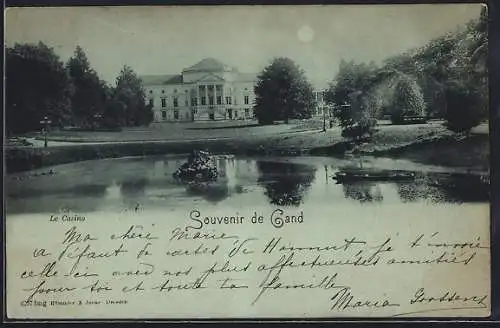 Le Casino
Souvenir de Gand
Ma chéri Marie
a défaut de cartes de Hammut je t'envoie
celle-ci avec nos plus affectueuses amitiés
pour toi et toute ta famille
Maria Goossens
Römmler & Jonas Dresden